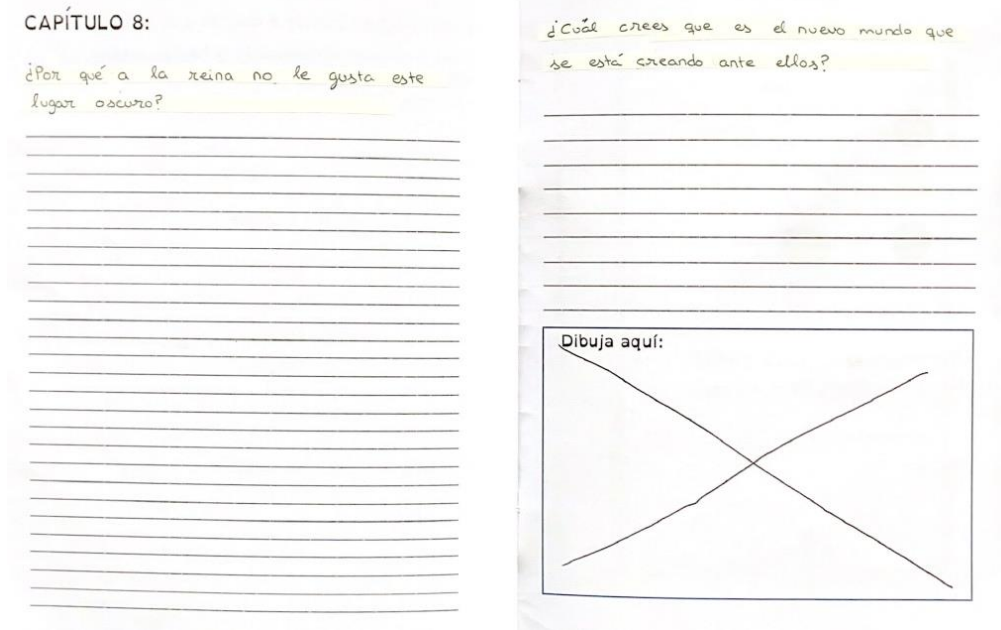 CAPÍTULO 8:
¿Por qué a la reina no le gusta este
lugar oscuro?
¿Cuál crees que es el nuevo mundo que
se está creando ante ellos?
Dibuja aquí: